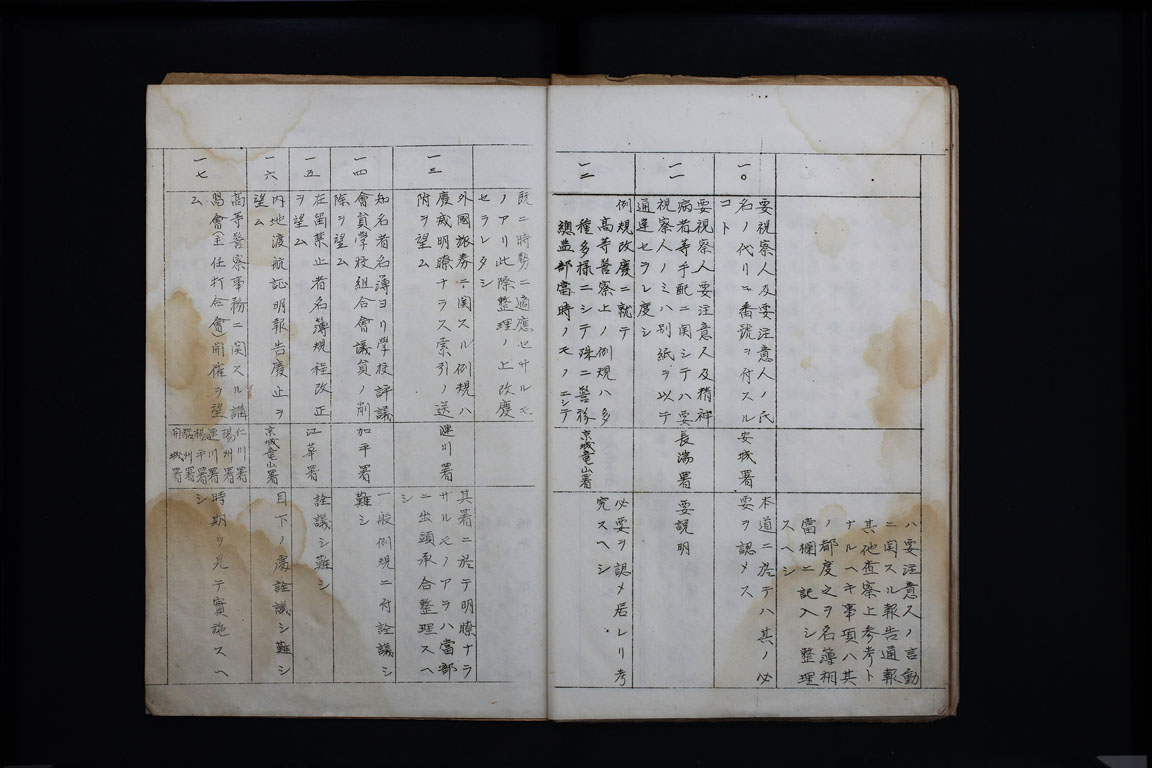 ハ要注意人ノ言動
ニ関スル報告通報
其他査察上参考ト
ナルヘキ事項ハ其
ノ都度之ヲ名簿相
當欄ニ記入シ整理
スヘシ
一〇
要視察人及要注意人ノ氏
名ノ代リニ番號ヲ付スル
コト
安城署
本道ニ於テハ其ノ必
要ヲ認メス
一一
要視察人要注意人及精神
病者等手配ニ関シテハ要
視察人ノミハ別紙ヲ以テ
通達セラレ度シ
長湍署
要説明
一二
例規改廢ニ就テ
高等警察上ノ例規ハ多
種多様ニシテ殊ニ警務
總監部當時ノモノニシテ
京城竜山署
必要ヲ認メ居レリ考
究スヘシ
既ニ時勢ニ適應セサルモ
ノアリ此際整理ノ上改廢
セラレタシ
一三
外國旅券ニ関スル例規ハ
廢或明瞭ナラス索引ノ送
附ヲ望ム
漣川署
其署ニ於テ明瞭ナラ
サルモノアラハ當部
ニ出頭承合整理スヘ
シ
一四
知名者名簿ヨリ學校評議
會員學校組合會議員ノ削
除ヲ望ム
加平署
一般例規ニ付詮議シ
難シ
一五
在留禁止者名簿規程改正
ヲ望ム
江華署
詮議シ難シ
一六
内地渡航証明報告廢止ヲ
望ム
京城竜山署
目下ノ處詮議シ難シ
一七
高等警察事務ニ関スル講
習會(主任打合會)開催ヲ望
ム
仁川署
楊州署
漣川署
楊平署
開城署
時期ヲ見テ實施スヘ
シ